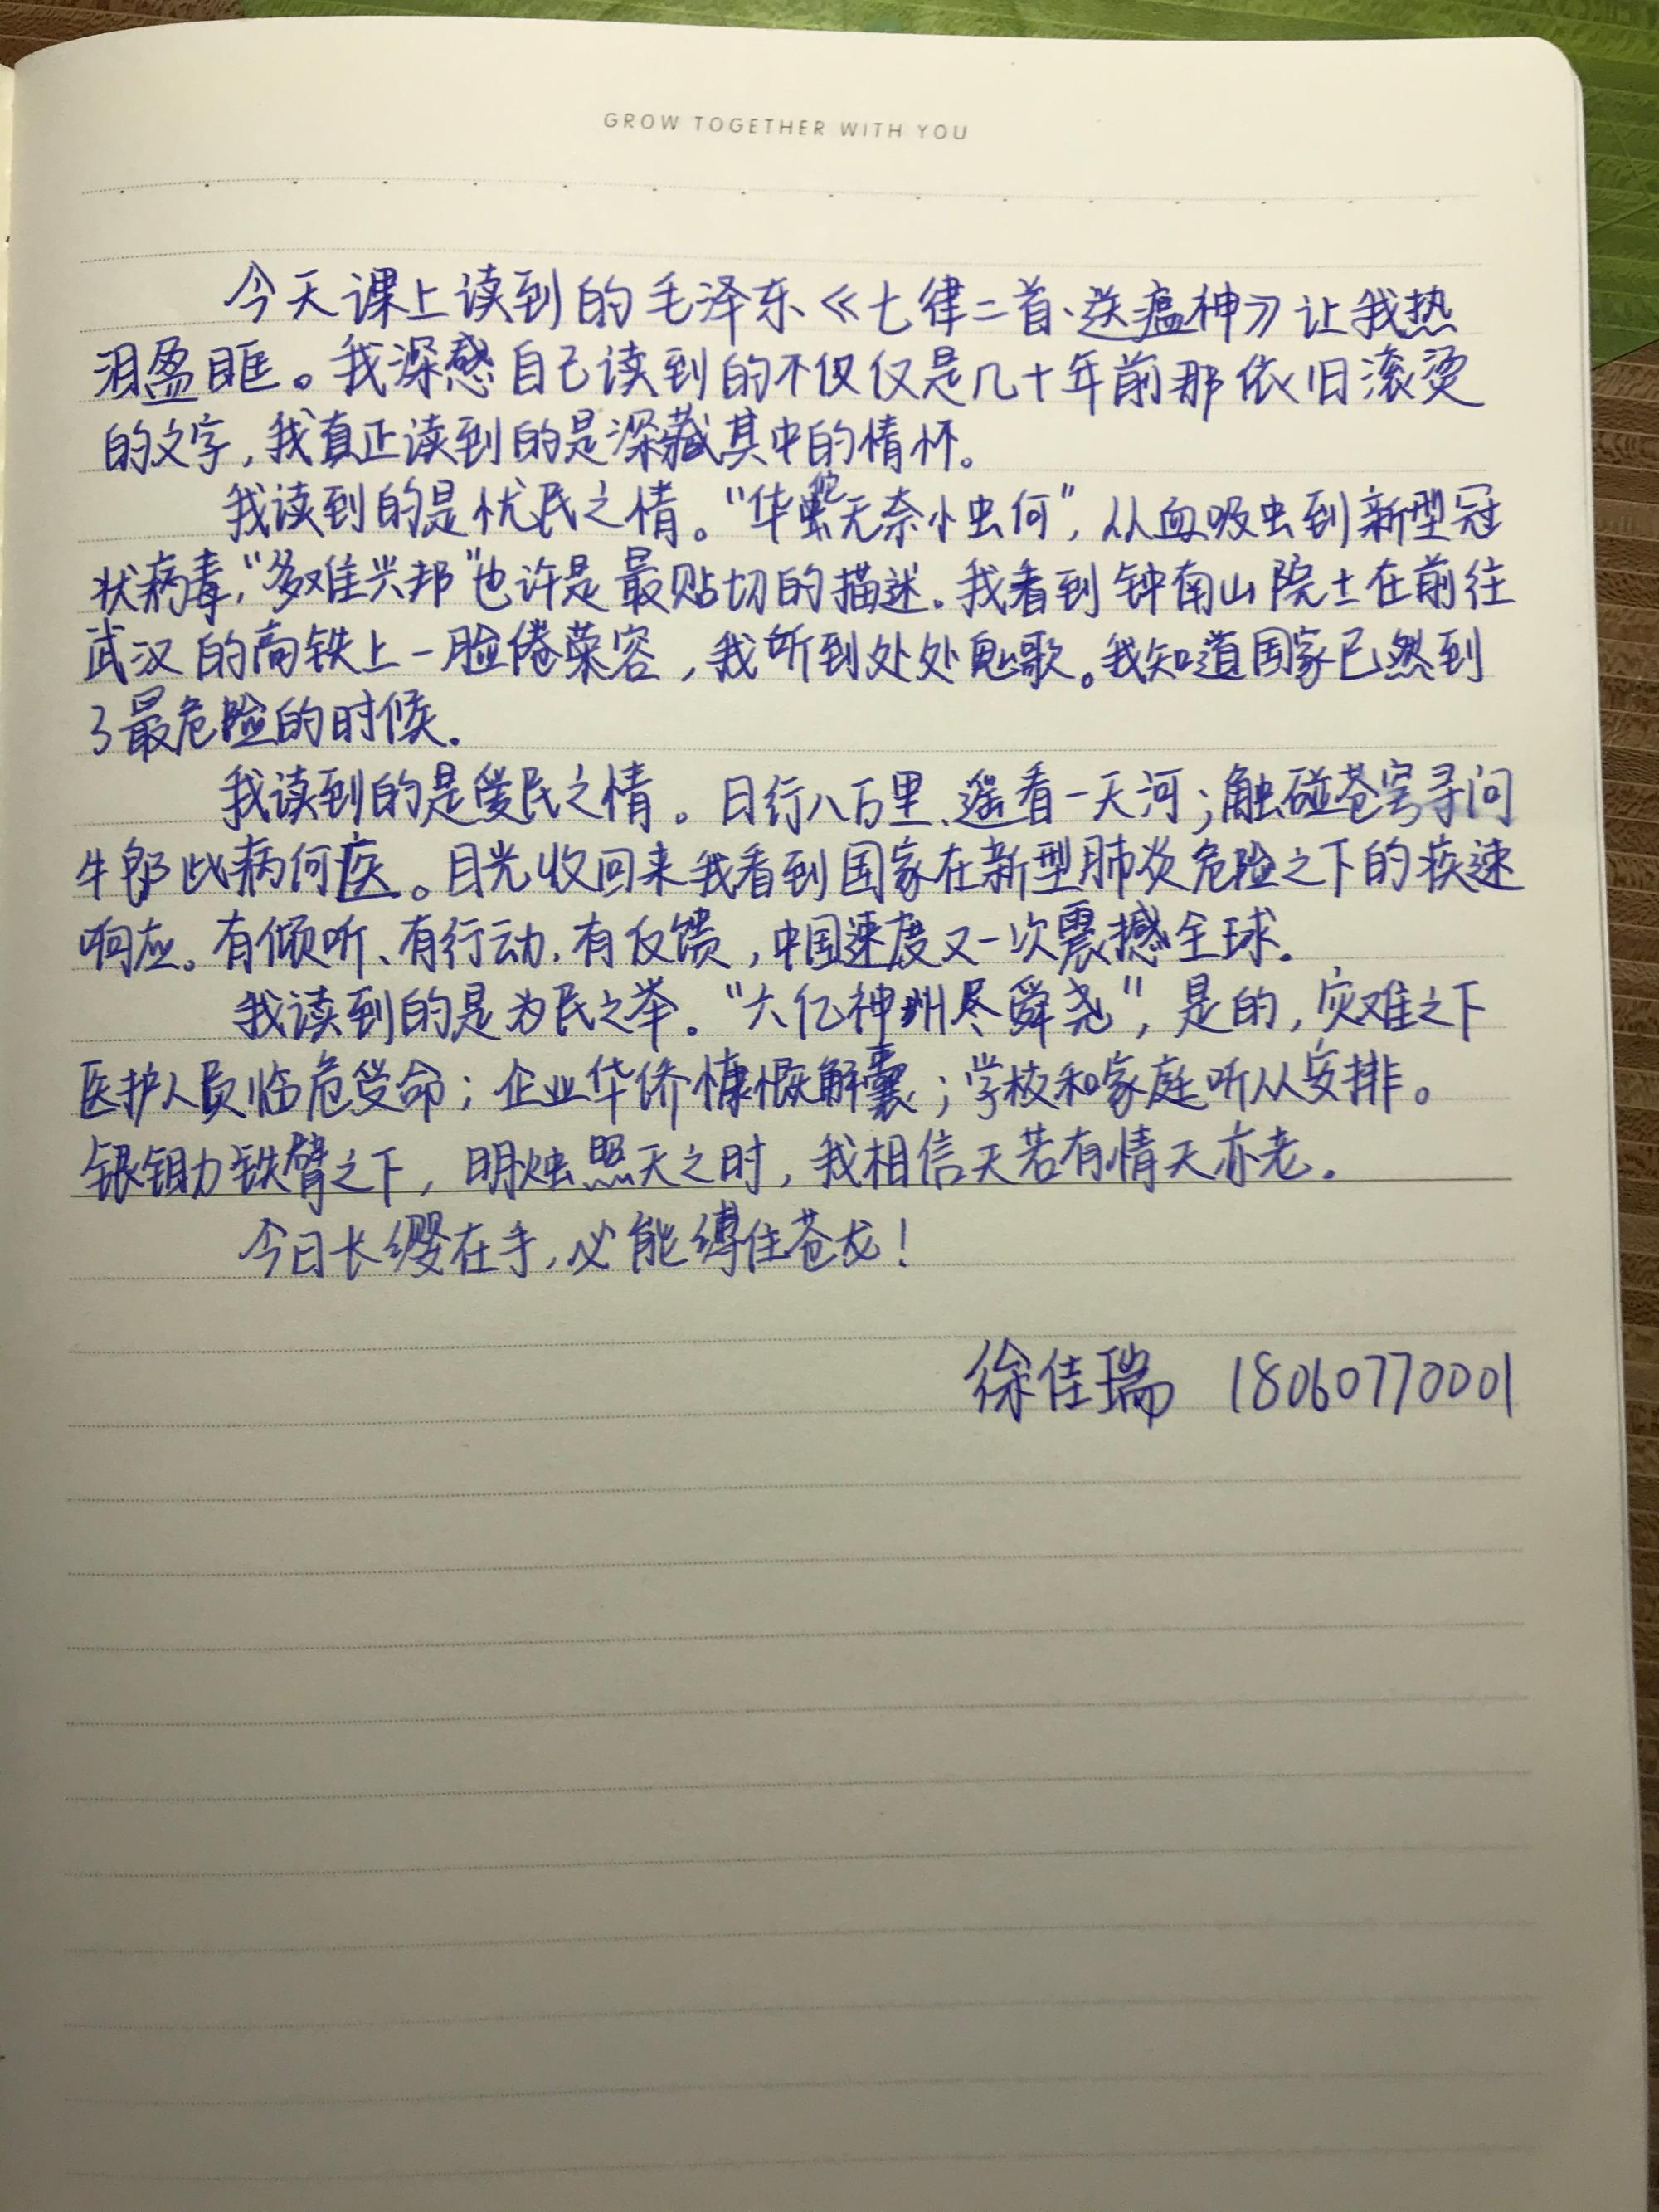 GROW TOGETHER WITH YOU
今天课上读到的毛泽东《七律二首·送瘟神》让我热
泪盈眶。我深感自己读到的不仅仅是几十年前那依旧滚烫
的文字,我真正读到的是深藏其中的情怀。
我读到的是忧民之情。“华佗无奈小虫何”,从血吸虫到新型冠
状病毒,“多难兴邦”也许是最贴切的描述。我看到钟南山院士在前往
武汉的高铁上一脸倦荣容,我听到处处鬼歌。我知道国家已然到
了最危险的时候.
我读到的是爱民之情。日行八万里、遥看一天河;触碰苍穹寻问
牛郎此病何医。目光收回来我看到国家在新型肺炎危险之下的疾速
响应。有倾听、有行动、有反馈,中国速度又一次震撼全球.
我读到的是为民之举。“六亿神州尽舜尧”,是的,灾难之下
医护人员临危受命;企业华侨慷慨解囊;学校和家庭听从安排。
银锄力铁臂之下,明烛照天之时,我相信天若有情天亦老.
今日长缨在手,必能缚住苍龙!
徐佳瑞 18060770001